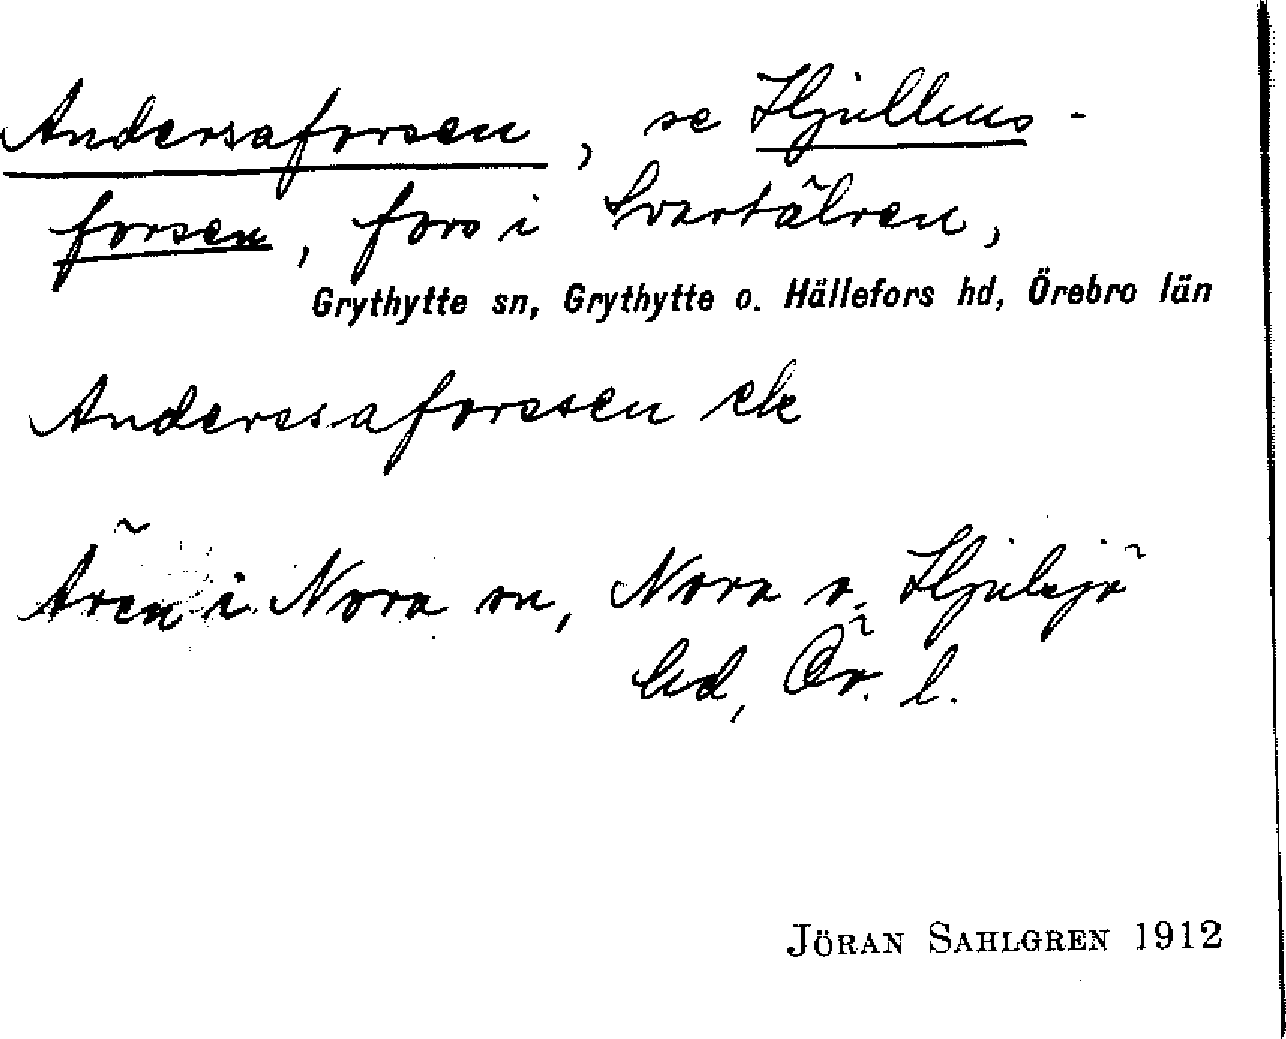 Andersaforsen, se Hjullens-
forsen, fors i Svartälven,
Grythytte sn, Grythytte o. Hällefors hd, Örebro län
Anderssaforssen ek
i Nora sn, Nora o. Hjulsjö
bd, Ör. l.
JÖRAN SAHLGREN 1912